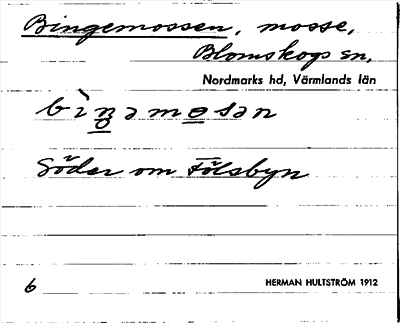 Bingemossen, mosse,
Blomskogs sn,
Nordmarks hd, Värmlands län
bìŋəmosən
Söder om Fölsbyn
6 HERMAN HULTSTRÖM 1912